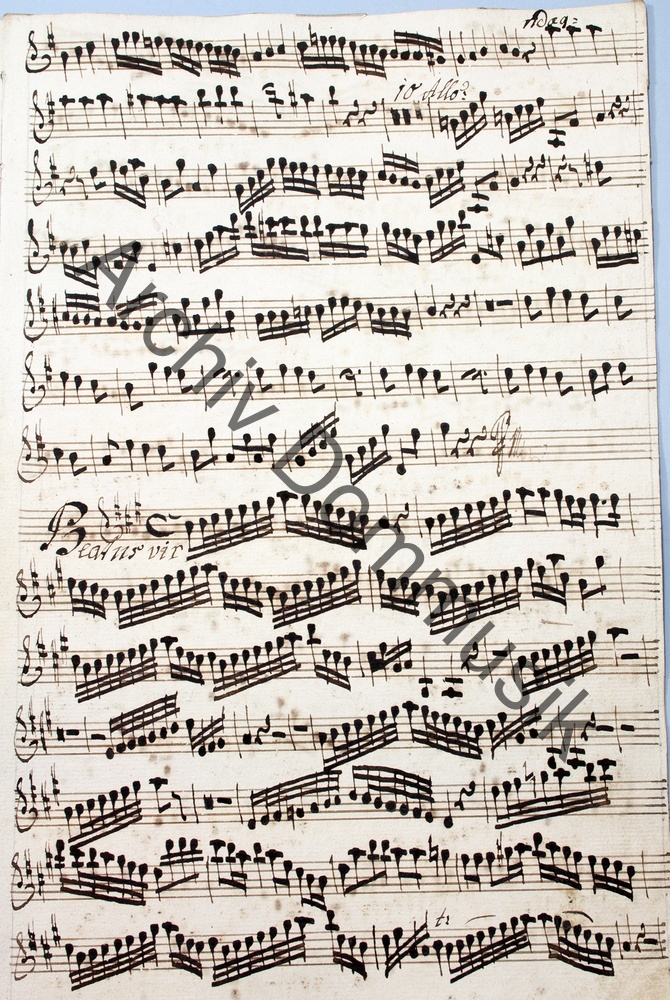 Adag:
10 Allo:
Beatus vir
t:
Archiv Dommusik